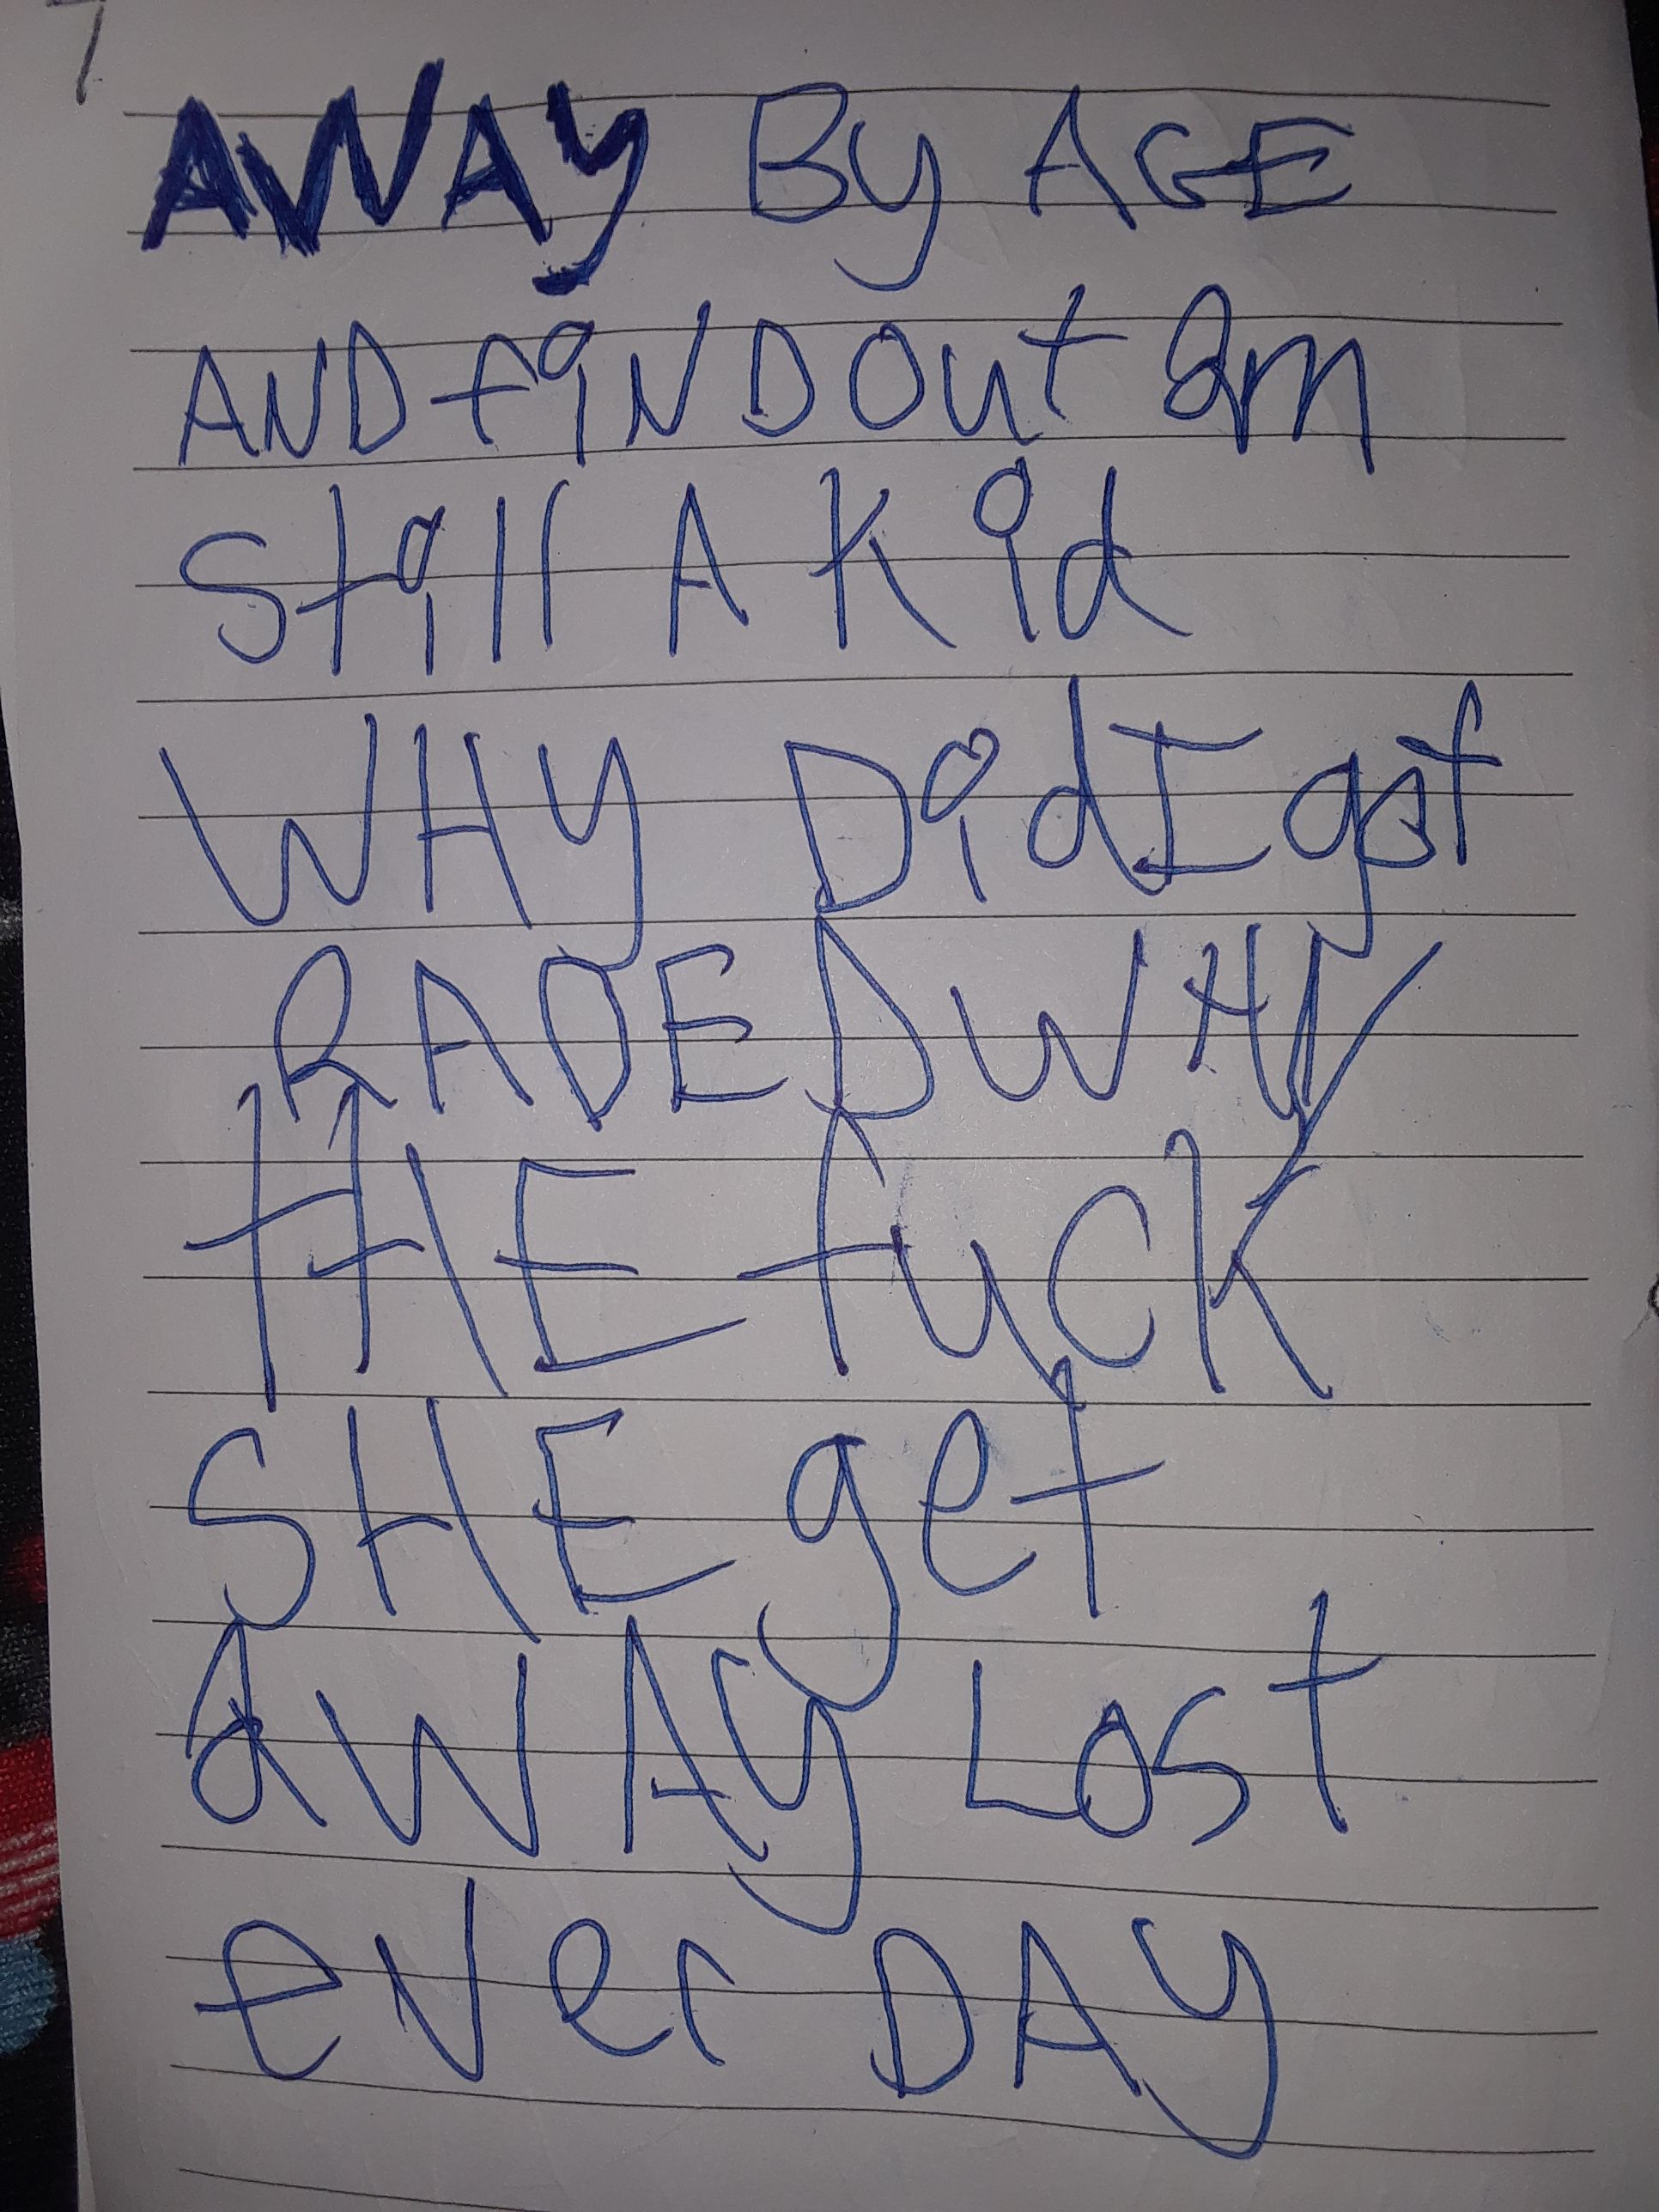 7
AWAY By AGE
AND finD Out Im
Still A Kid
WHy Did I got
RAOED WHY
tHE fuck
SHE get
AWAy Lost
ever DAy